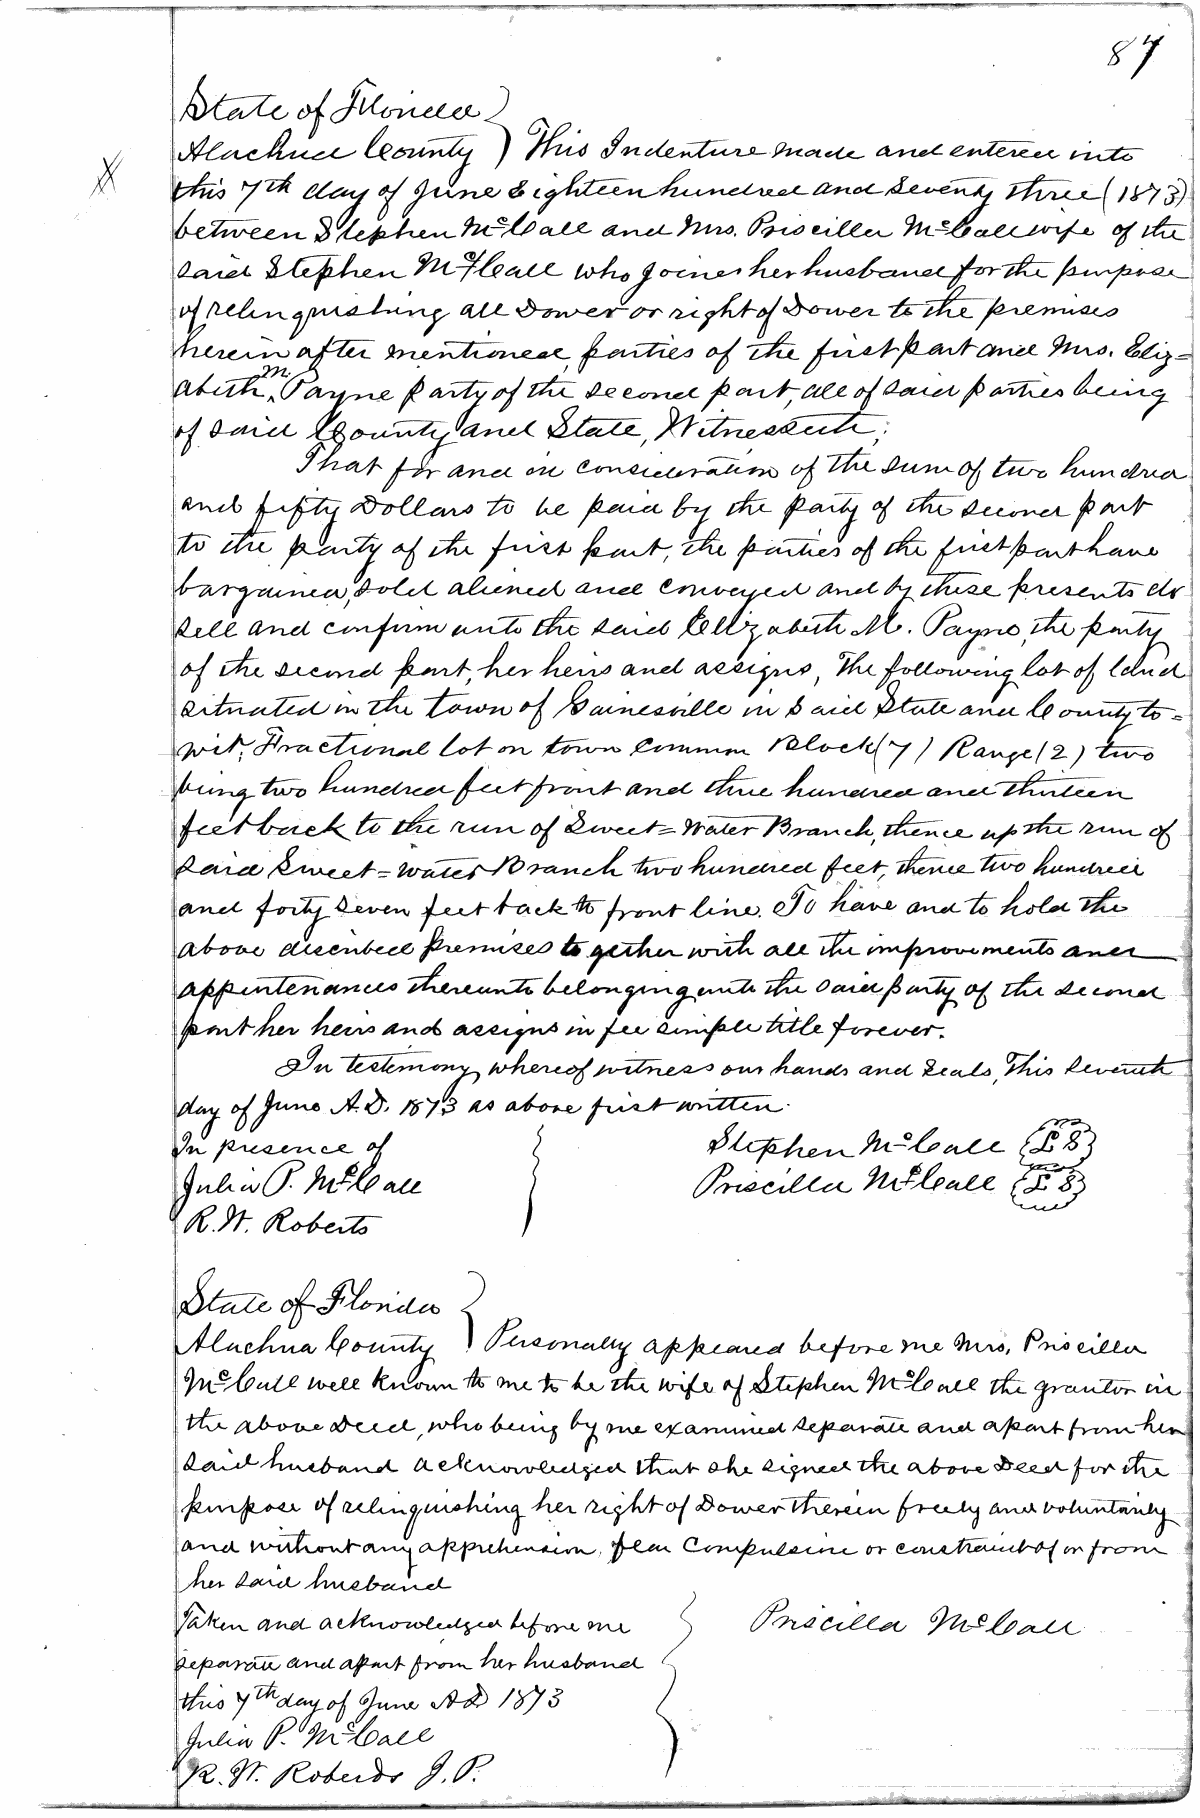 87
State of Florida
Alachua County } This Indenture made and entered into
this 7th day of June Eighteen hundred and Seventy three (1873)
between Stephen McCall and Mrs. Priscilla McCall wife of the
said Stephen McCall who joines her husband for the purpose
of relinquishing all Dower or right of Dower to the premises
herein after mentioned, parties of the first part and Mrs. Eliz=
abeth M. Payne party of the second part, all of said parties being
of said County and State, Witnesseth;
That for and in consideration of the sum of two hundred
and fifty Dollars to be paid by the party of the second part
to the party of the first part, the parties of the first part have
bargained, sold aliened and conveyed and by these presents do
sell and confirm unto the said Elizabeth M. Payne, the party
of the second part, her heirs and assigns, The following lot of land
situated in the town of Gainesville in Said State and County to=
wit; Fractional lot on town Common Block (7) Range (2) two
being two hundred feet front and three hundred and thirteen
feet back to the run of Sweet=Water Branch, thence up the run of
said Sweet=water Branch two hundred feet, thence two hundred
and forty seven feet back to front line. To have and to hold the
above discribed premises together with all the improvements and
appintenances thereunto belonging unto the said party of the second
part her heirs and assigns in fee simple title forever.
In testimony whereof witness our hands and Seals, This Seventh
day of June A.D. 1873 as above first written.
In presence of } Stephen McCall {L S}
Julia P. McCall Priscilla McCall {L S}
R. W. Roberts
State of Florida
Alachua County } Personally appeared before me Mrs. Priscilla
McCall well known to me to be the wife of Stephen McCall the grantor in
the above Deed, who being by me examined separate and apart from her
said husband acknowledged that she signed the above Deed for the
purpose of relinquishing her right of Dower therein freely and voluntarily
and without any apprehension, fear Compulsion or constraint of or from
her said husband
Taken and acknowledged before me } Priscilla McCall
separate and apart from her husband
this 7th day of June AD 1873
Julia P. McCall
R. W. Roberts J. P.